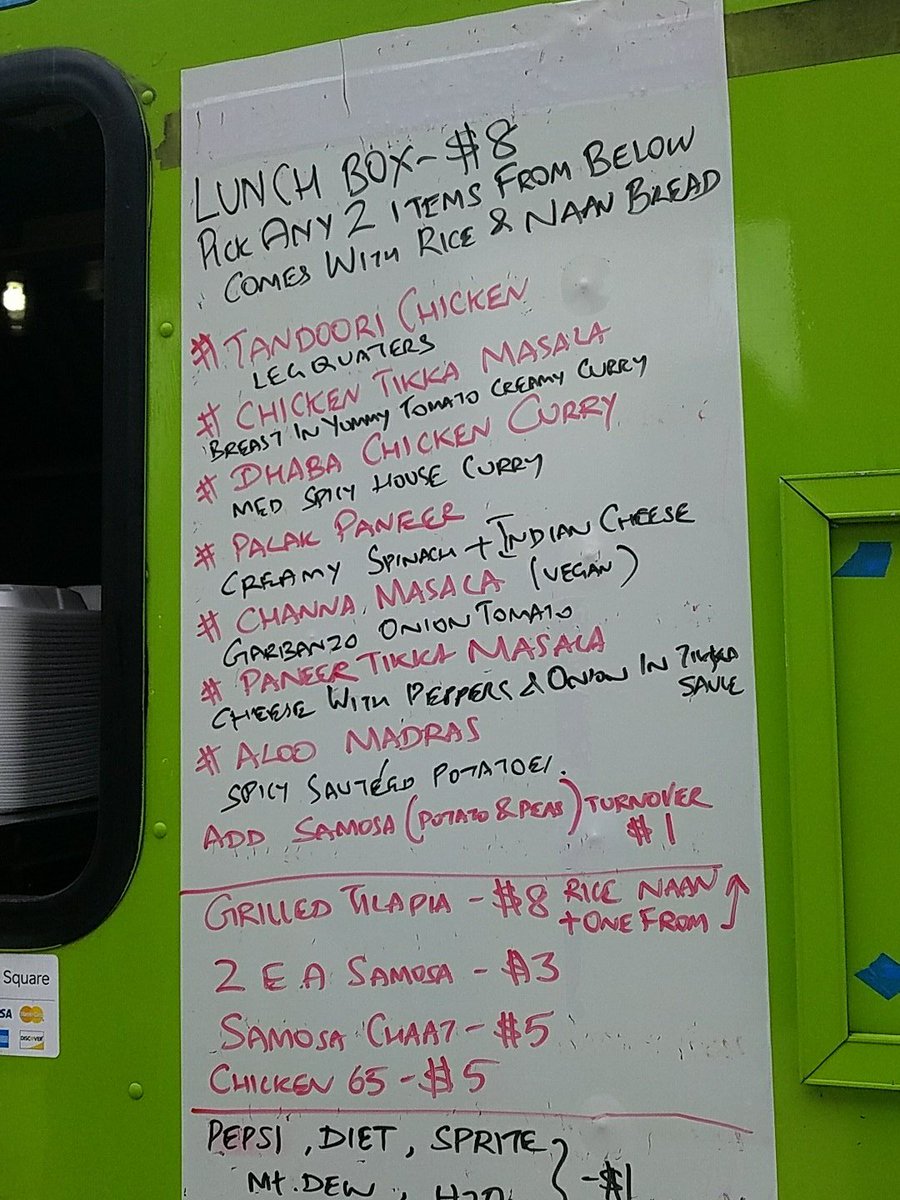 LUNCH BOX - $8
PICK ANY 2 ITEMS FROM BELOW
COMES WITH RICE & NAAN BREAD
# TANDOORI CHICKEN
LEG QUATERS
# CHICKEN TIKKA MASALA
BREAST IN YUMMY TOMATO CREAMY CURRY
# DHABA CHICKEN CURRY
MED SPICY HOUSE CURRY
# PALAK PANEER
CREAMY SPINACH + INDIAN CHEESE
# CHANNA MASALA (VEGAN)
GARBANZO ONION TOMATO
# PANEER TIKKA MASALA
CHEESE WITH PEPPERS & ONION IN TIKKA
SAUCE
# ALOO MADRAS
SPICY SAUTEED POTATOES.
ADD SAMOSA (POTATO & PEAS) TURNOVER
$1
GRILLED TILAPIA - $8 RICE NAAN
+ ONE FROM ↑
2 EA SAMOSA - $3
SAMOSA CHAAT - $5
CHICKEN 65 - $5
PEPSI, DIET, SPRITE
Mt. DEW, H2O } - $1
Square
VISA MasterCard
DISCOVER